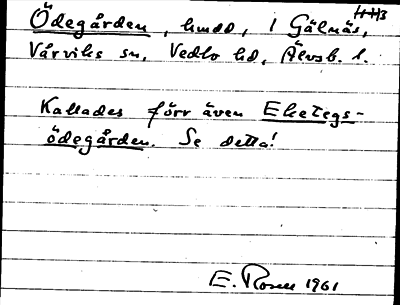 Ödegården, hmdd, i Gälnäs,
Vårviks sn, Vedbo hd, Älvsb. l.
Kallades förr även Eketegs-
ödegården. Se detta!
E. Rosell 1961